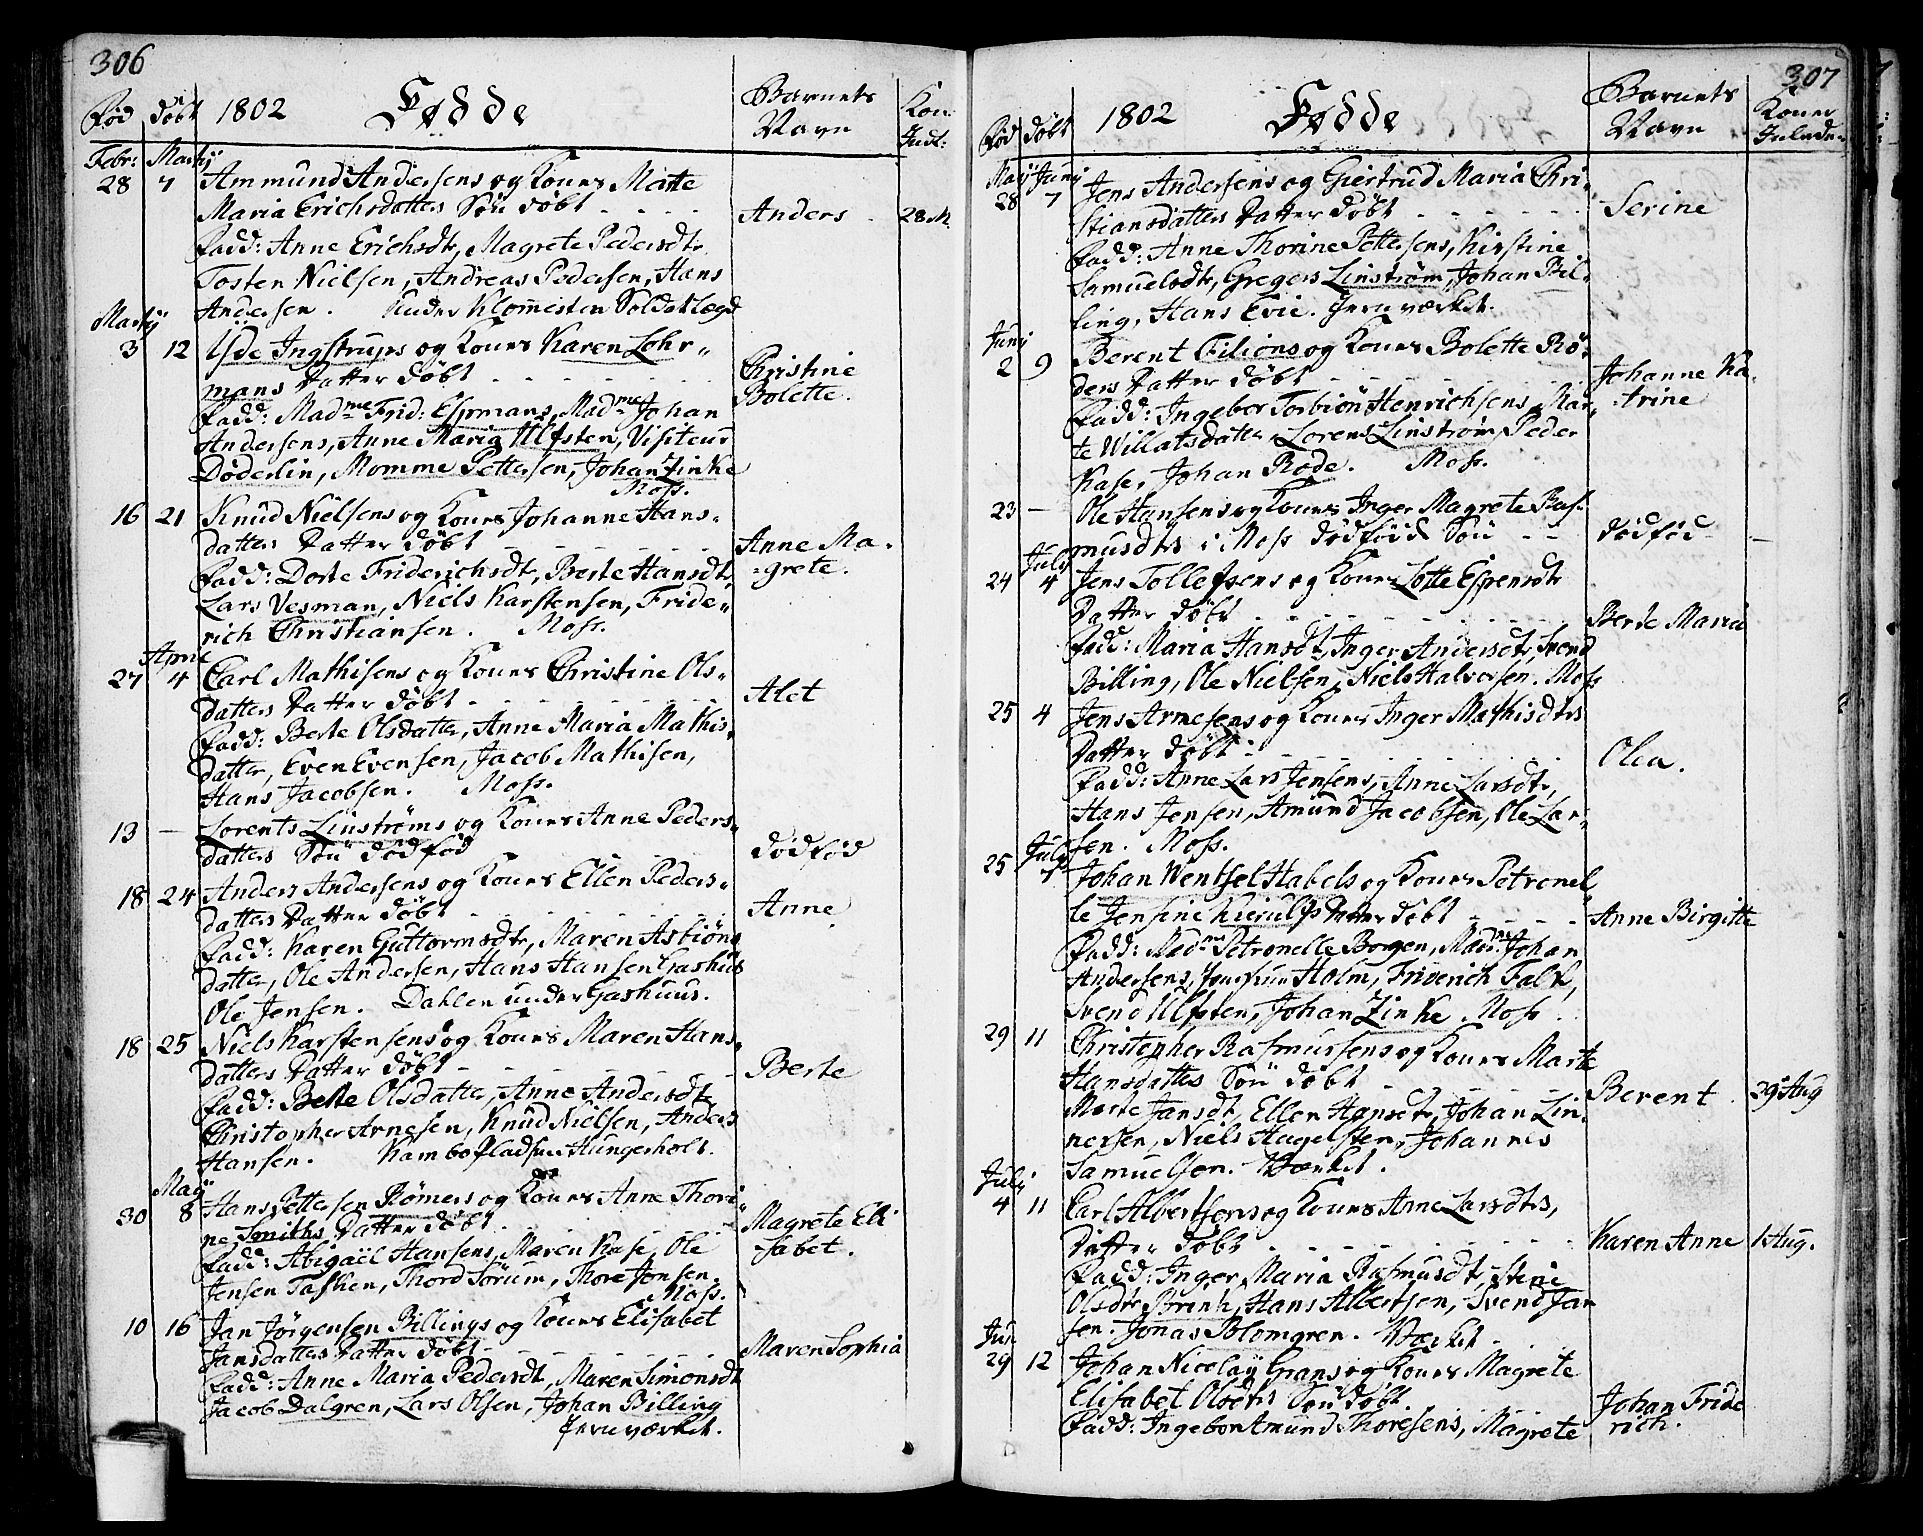 306
Fød døbt 1802 Fødde Barnets Navn Kon: Indl:
Febr: Martij
28 7 Ammund Andersens og Kones Marte
Maria Erichsdatters Søn døbt - - - - Anders - 28 M.
Fadd: Anne Erichsdtr, Magrete Pedersdtr
Tosten Nielsen, Andreas Pedersen, Hans
Andersen. Under Klomesten Soldatlægd
Martij
3 12 Isde Ingstrups og Kones Karen Lohr-
mans Datter døbt - - - - Christine
Bolette.
Fadd: Madme Frid: Esprmans, Madme Johan
Andersens, Anne Maria Ulfsten, Visiteur
Døderlin, Momme Pettersen, Johan Zinke
Moss.
16 21 Knud Nielsens og Kones Johanne Hans-
datters Datter døbt - - - - Anne Ma-
grete.
Fadd: Dorte Friderichsdt, Berte Hansdtr,
Lars Vesman, Niels Karstensen, Fride-
rich Christiansen. Moss.
April
27 4 Carl Mathisens og Kones Christine Ols-
datters Datter døbt - - - - Alet
Fadd: Berte Olsdatter, Anne Maria Mathis-
datter, Even Evensen, Jacob Mathisen,
Hans Jacobsen. Moss.
13 — Lorents Linstrøms og Kones Anne Peders-
datters Søn dødfød dødfød
18 24 Anders Andersens og Kones Ellen Peders-
datters Datter døbt - - - - Anne
Fadd: Karen Guttormsdtr, Maren Asbiøns
datter, Ole Andersen, Hans Hansen Gashuus
Ole Jensen. Dahlen under Gashuus.
18 25 Niels Karstensens og Kones Maren Hans-
datters Datter døbt - - - - Berte
Fadd: Berte Olsdatter, Anne Andersdtr
Christopher Arnesen, Knud Nielsen, Anders
Hansen. Kambo Pladsen Hungerholt.
May
30 8 Hans Pettersen Rømers og Kones Anne Thori-
ne Smiths Datter døbt - Magrete Eli
sabet.
Fadd: Abigaël Hansens, Maren Kase, Ole
Jensen Tasken, Thord Sørum, Thore Jensen
Moss.
10 16 Jan Jørgensen Billings og Kones Elisabet
Jansdatters Datter døbt - - - - Maren Sophia
Fadd: Anne Maria Pedersdt, Maren Simonsdt
Jacob Dalgren, Lars Olsen, Johan Billing
Jernværket.
307
Fød døbt 1802 Fødde Barnets Navn Koner Inlede
May Junij
28 7 Jens Andersens og Giertrud Maria Chri-
stiansdatters Datter døbt - - - - Serine
Fadd: Anne Thorine Pettersens, Kirstine
Samuelsdtr, Gregers Linstrøm, Johan Bil-
ling, Hans Evie. Jernværket.
Junij
2 9 Berent Filions og Kones Bolette Rø-
ders Datter døbt - - - - Johanne Ka-
trine
Fadd: Ingebor Torbiøn Henrichsens, Mar-
te Willatsdatter, Lorens Linstrøm, Peder
Kase, Johan Rode. Moss.
23 — Ole Hansens og Kones Inger Magrete Ras-
musdtrs i Moss dødfød Søn - - dødfød -
July
24 4 Jens Tollefsens og Kones Lotte Espensdtr
Datter døbt - - - - Berte Maria
Fadd: Maria Hansdt, Inger Andersdtr, Svend
Billing, Ole Nielsen, Niels Halvorsen. Moss
25 4 Jens Arnesens og Kones Inger Mathisdtrs
Datter døbt - - - - Olea.
Fadd: Anne Lars Jensens, Anne Larsdtr,
Hans Jensen, Amund Jacobsen, Ole Lar-
sen. Moss.
July
25 7 Johan Wentsel Habels og Kones Petronel
le Jensine Kierulfs Datter døbt - - - - Anne Birgitte
Fadd: Madme Petronelle Borgen, Madme Johan
Andersens, Jomfrue Holm, Friderich Falk,
Svend Ulfsten, Johan Zinke. Moss.
29 11 Christopher Rasmussens og Kones Marte
Hansdatters Søn døbt - - - - Berent. 29 Aug
Marte Jansdt, Ellen Hansdtr, Johan Lin-
nersen, Niels Hagelsten, Johannes
Samuelsen. Værket.
Julij
4 11 Carl Albertsens og Kones Anne Larsdtrs,
Datter døbt - - - - Karen Anne 1 Aug.
Fadd: Inger Maria Rasmusdt, Stine
Olsdtr Strink, Hans Albertsen, Svend Jan
sen. Jonas Blomgren. Værket.
Jun
29 12 Johan Nicolay Grans og Kones Magrete
Elisabet Olsdtrs Søn døbt. Johan Fride
rich.
Fadd: Ingebor Amund Thoresens, Magrete